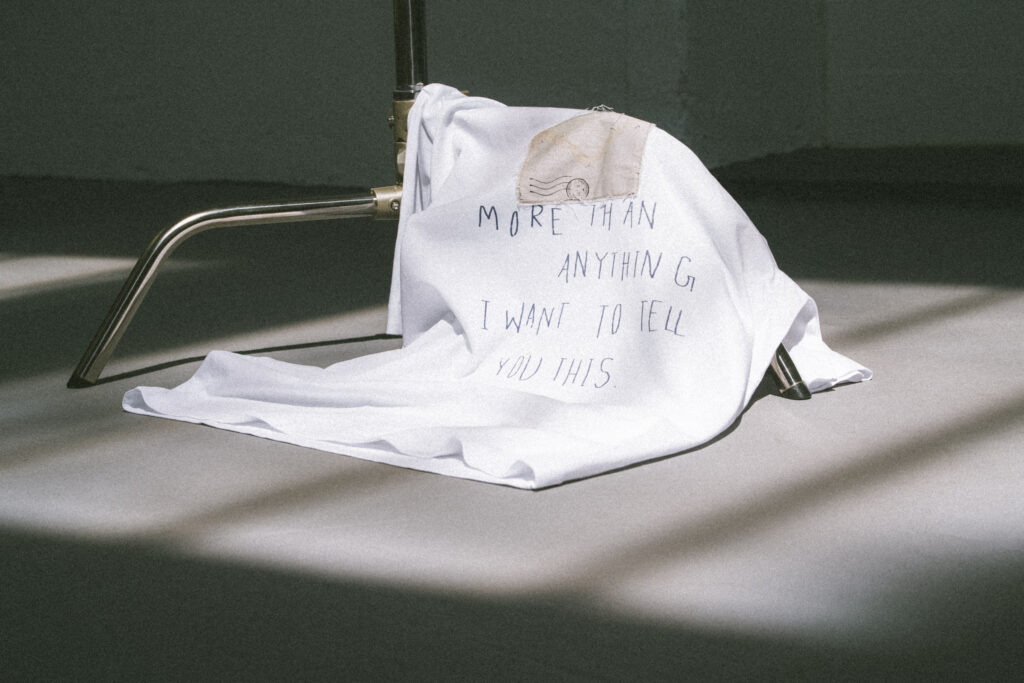 MORE THAN
ANYTHING
I WANT TO TELL
YOU THIS.